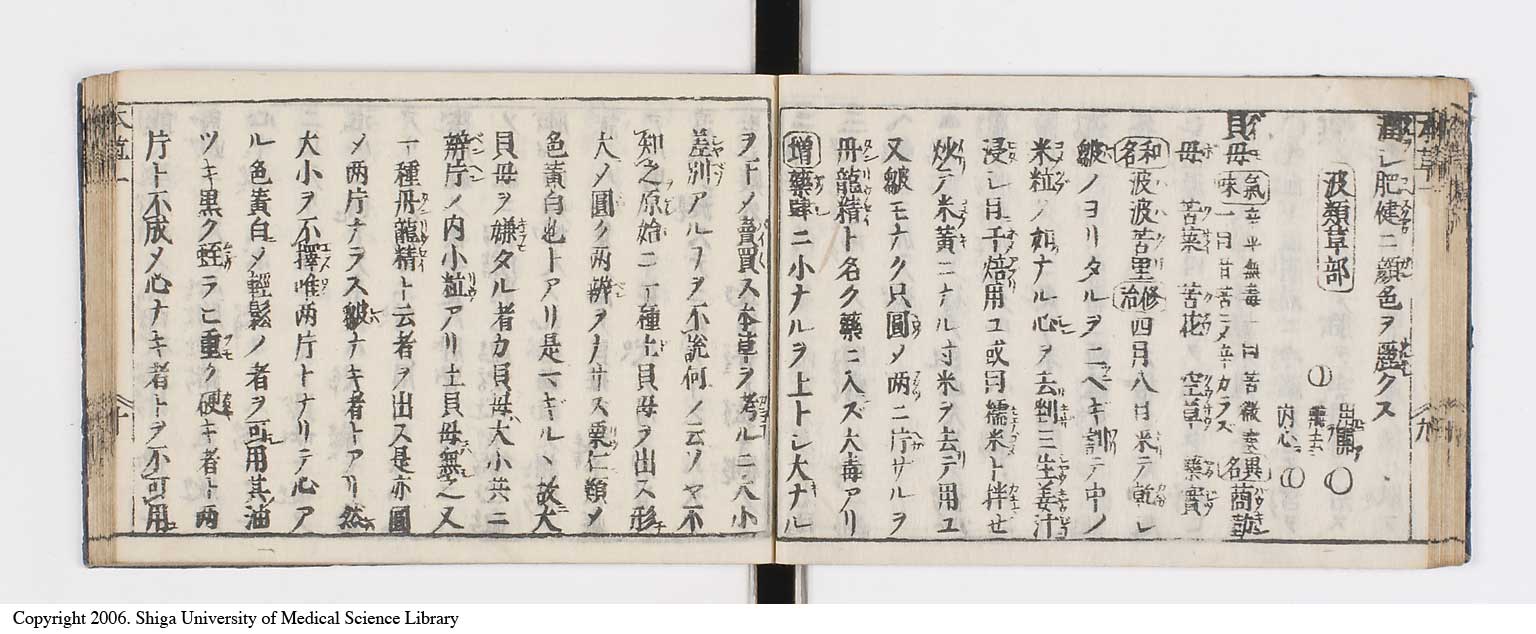 潤レ肥健ニ顔色ヲ麗クス
波類草部
貝母 氣味 辛平無毒一曰苦微寒一曰甘苦ニメ辛カラズ 異名 商
母 苦菜 苦花 空草 藥實
和名 波波苦里 修治 四月八日米テ乾レ
皺ノヨリタルヲ二ヘギ割テ中ノ
米粒ノ如ナル心ヲ去判三生姜汁
浸レ日干焙用ユ或曰糯米ト拌セ
炒テ米黄ニナル寸米ヲ去テ用ユ
又皺モナク只圓メ两ニ片ザルヲ
丹龍精ト名ク藥ニ入ズ大毒アリ
増 藥肆ニ小ナルヲ上トレ大ナル
ヲ下メ賣買ス本草ヲ考ルニ大小
差別アルヿヲ不説何ノ云ソヤ不
知之原始ニ一種土貝母ヲ出ス形
大メ圓ク两辨ヲナサス栗仁類メ
色黄白也トアリ是マギルヽ故大
貝母ヲ嫌タル者カ貝母大小共ニ
辨片ノ内小粒アリ土貝母無之又
一種丹龍精ト云者ヲ出ス是亦圓
メ两片ナラス皺ナキ者トアリ然
大小ヲ不擇唯两片トナリテ心ア
ル色黄白メ輕鬆ノ者ヲ可用其油
ツキ黒ク蛀ラヒ重ク硬キ者ト两
片ト不成メ心ナキ者トヲ不可用
Copyright 2006. Shiga University of Medical Science Library